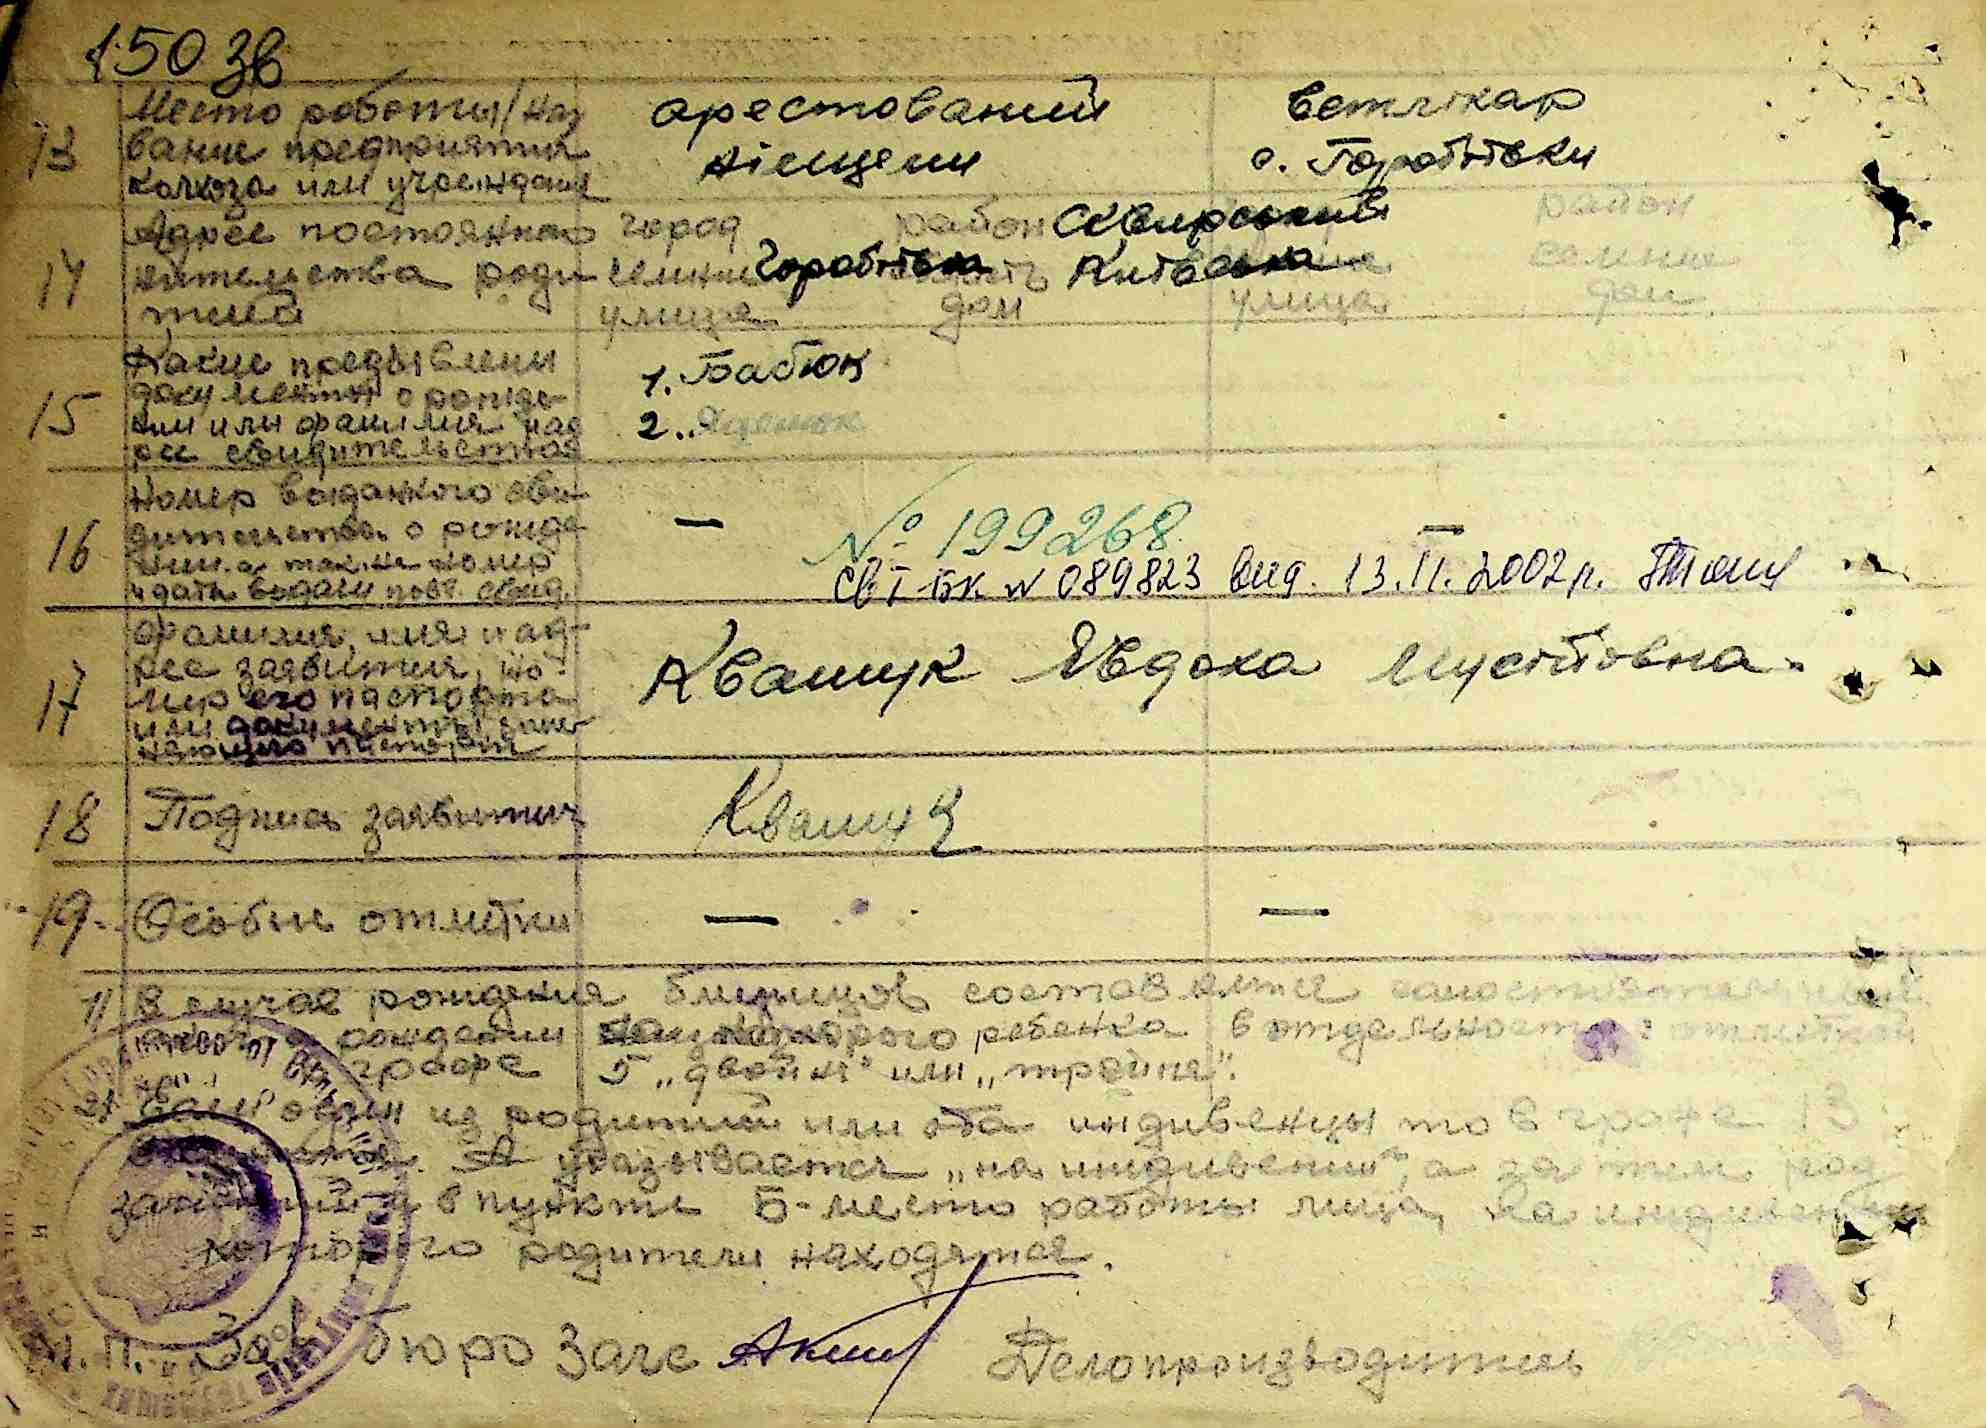 150 зв
13 Место работы/наз
вание предприятия
колхоза или учреждения
арестований
німцями
ветлікар
с. Горобіївки
14 Адрес постоянного
жительства роди
телей
город район Сквирський район
селение Горобіївка область Київська селение
улица дом улица дом
15 Какие предъявлены
документы о рожде-
нии или фамилия и ад
рес свидетельства
1. Бабюк
2. Яценюк
16 Номер выданного сви-
детельства о рожде-
нии а также номер
и дата выдачи повт. свид.
— № 199268 —
св І-БК № 089823 вид. 13.ІІ.2002 р.
17 Фамилия, имя и ад-
рес заявителя, но-
мер его паспорта
или документы заме-
няющего паспорт
Квашук Явдоха Мусіївна.
18 Подпись заявителя Квашук
19 Особые отметки — —
1) В случае рождения близнецов составляется самостоятельный
рождении каждого ребенка в отдельности с отметкой
графе 5 „двойня" или „тройня".
2) Если один из родителей или оба индивенцы то в графе 13
А указывается „на индивении", а за тем
в пункте Б-место работы лица, на индивении
которого родители находятся.
М.П. Зав бюро Загс Делопроизводитель